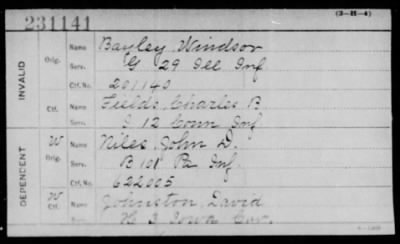 231141
(3-H-4)
INVALID
Orig.
Name Bayley, Windsor
Serv. G 29 Ill Inf
Ctf. No. 201140
Ctf.
Name Fields, Charles B.
Serv. I 12 Conn Inf
DEPENDENT
W
Orig.
Name Niles, John D.
Serv. B 101 Pa Inf.
Ctf. No. 622005
W
Ctf.
Name Johnston, David
Serv. H 3 Iowa Cav.